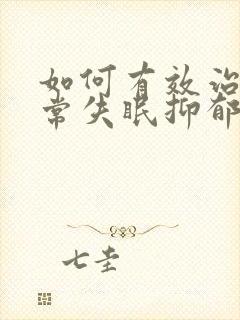 如何有效治
常失眠抑郁
七圭